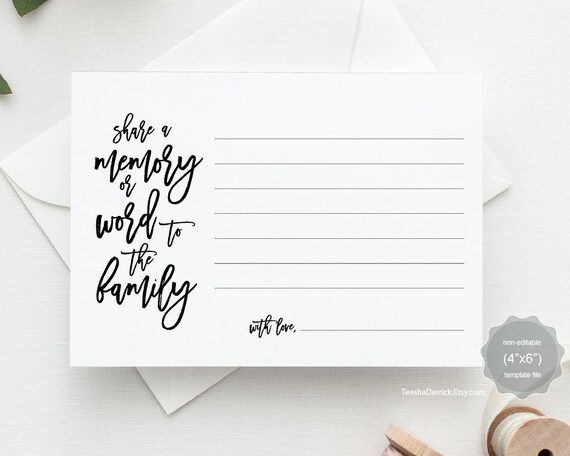 share a
memory
or
word to
the
family
with love,
non-editable
(4"x6")
template file
TeeshaDerrick.Etsy.com